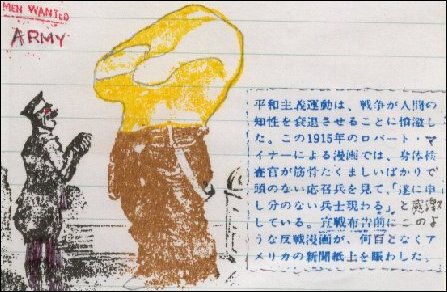 MEN WANTED
ARMY
平和主義運動は、戦争が人間の
知性を衰退させることに憤激し
た。この1915年のロバート・マ
イナーによる漫画では、身体検
査官が筋骨たくましいばかりで
頭のない応召兵を見て、「遂に申
し分のない兵士現わる」と感激
している。宣戦布告前にこのよ
うな反戦漫画が、何百となくア
メリカの新聞紙上を賑わした。